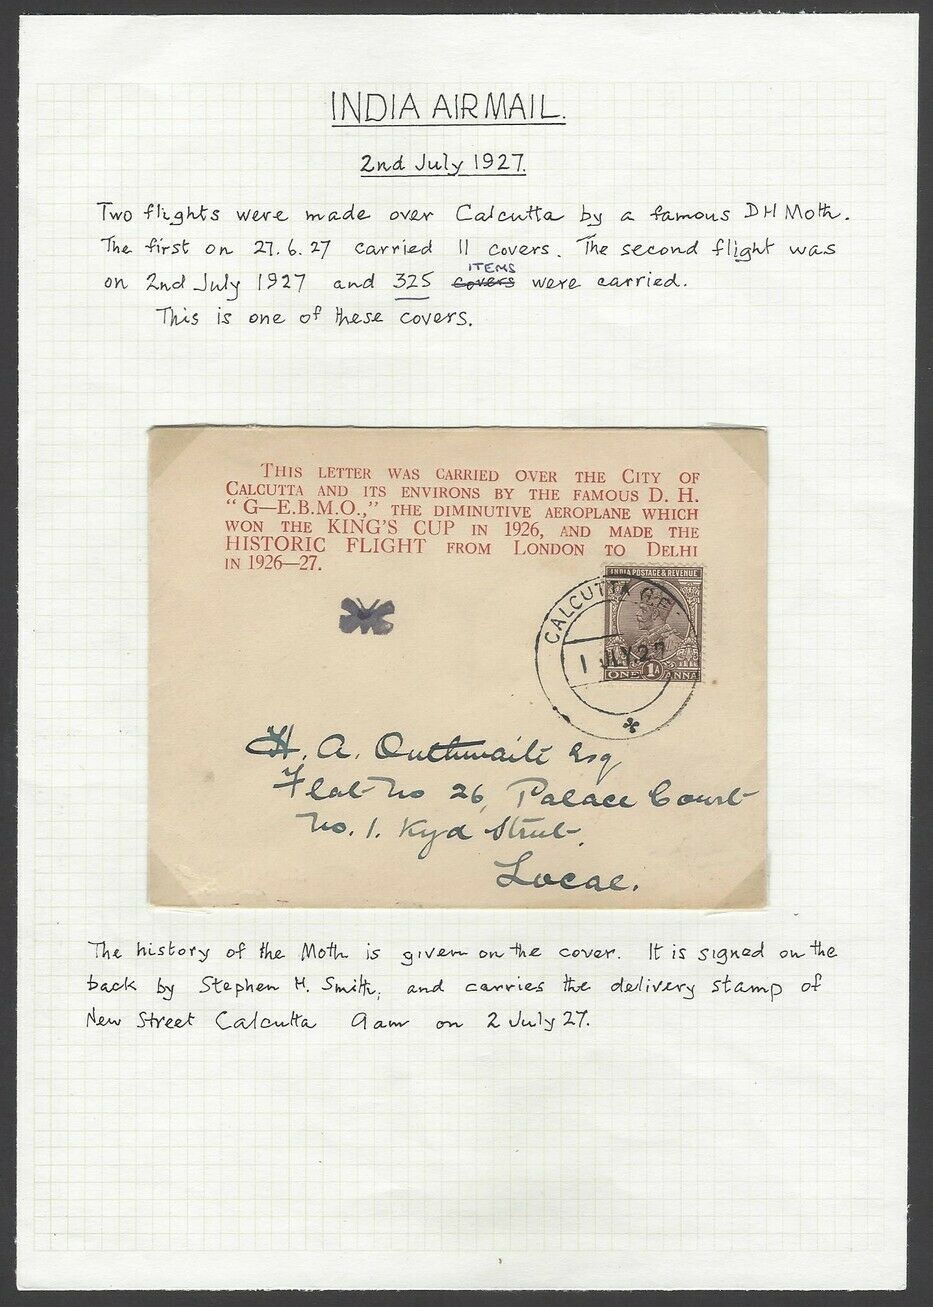 INDIA AIRMAIL.
2nd July 1927.
Two flights were made over Calcutta by a famous DH Moth.
The first on 27.6.27 carried 11 covers. The second flight was
ITEMS
on 2nd July 1927 and 325 covers were carried.
This is one of these covers.
THIS LETTER WAS CARRIED OVER THE CITY OF
CALCUTTA AND ITS ENVIRONS BY THE FAMOUS D. H.
"G—E.B.M.O.," THE DIMINUTIVE AEROPLANE WHICH
WON THE KING'S CUP IN 1926, AND MADE THE
HISTORIC FLIGHT FROM LONDON TO DELHI
IN 1926—27.
INDIA POSTAGE & REVENUE
CALCUTTA G.P.
1 JLY.27
ONE 1A ANNA
H. A. Outhwaite Esq
Flat No 26, Palace Court
No. 1. Kyd Street.
Local.
The history of the Moth is given on the cover. It is signed on the
back by Stephen H. Smith, and carries the delivery stamp of
New Street Calcutta 9am on 2 July 27.